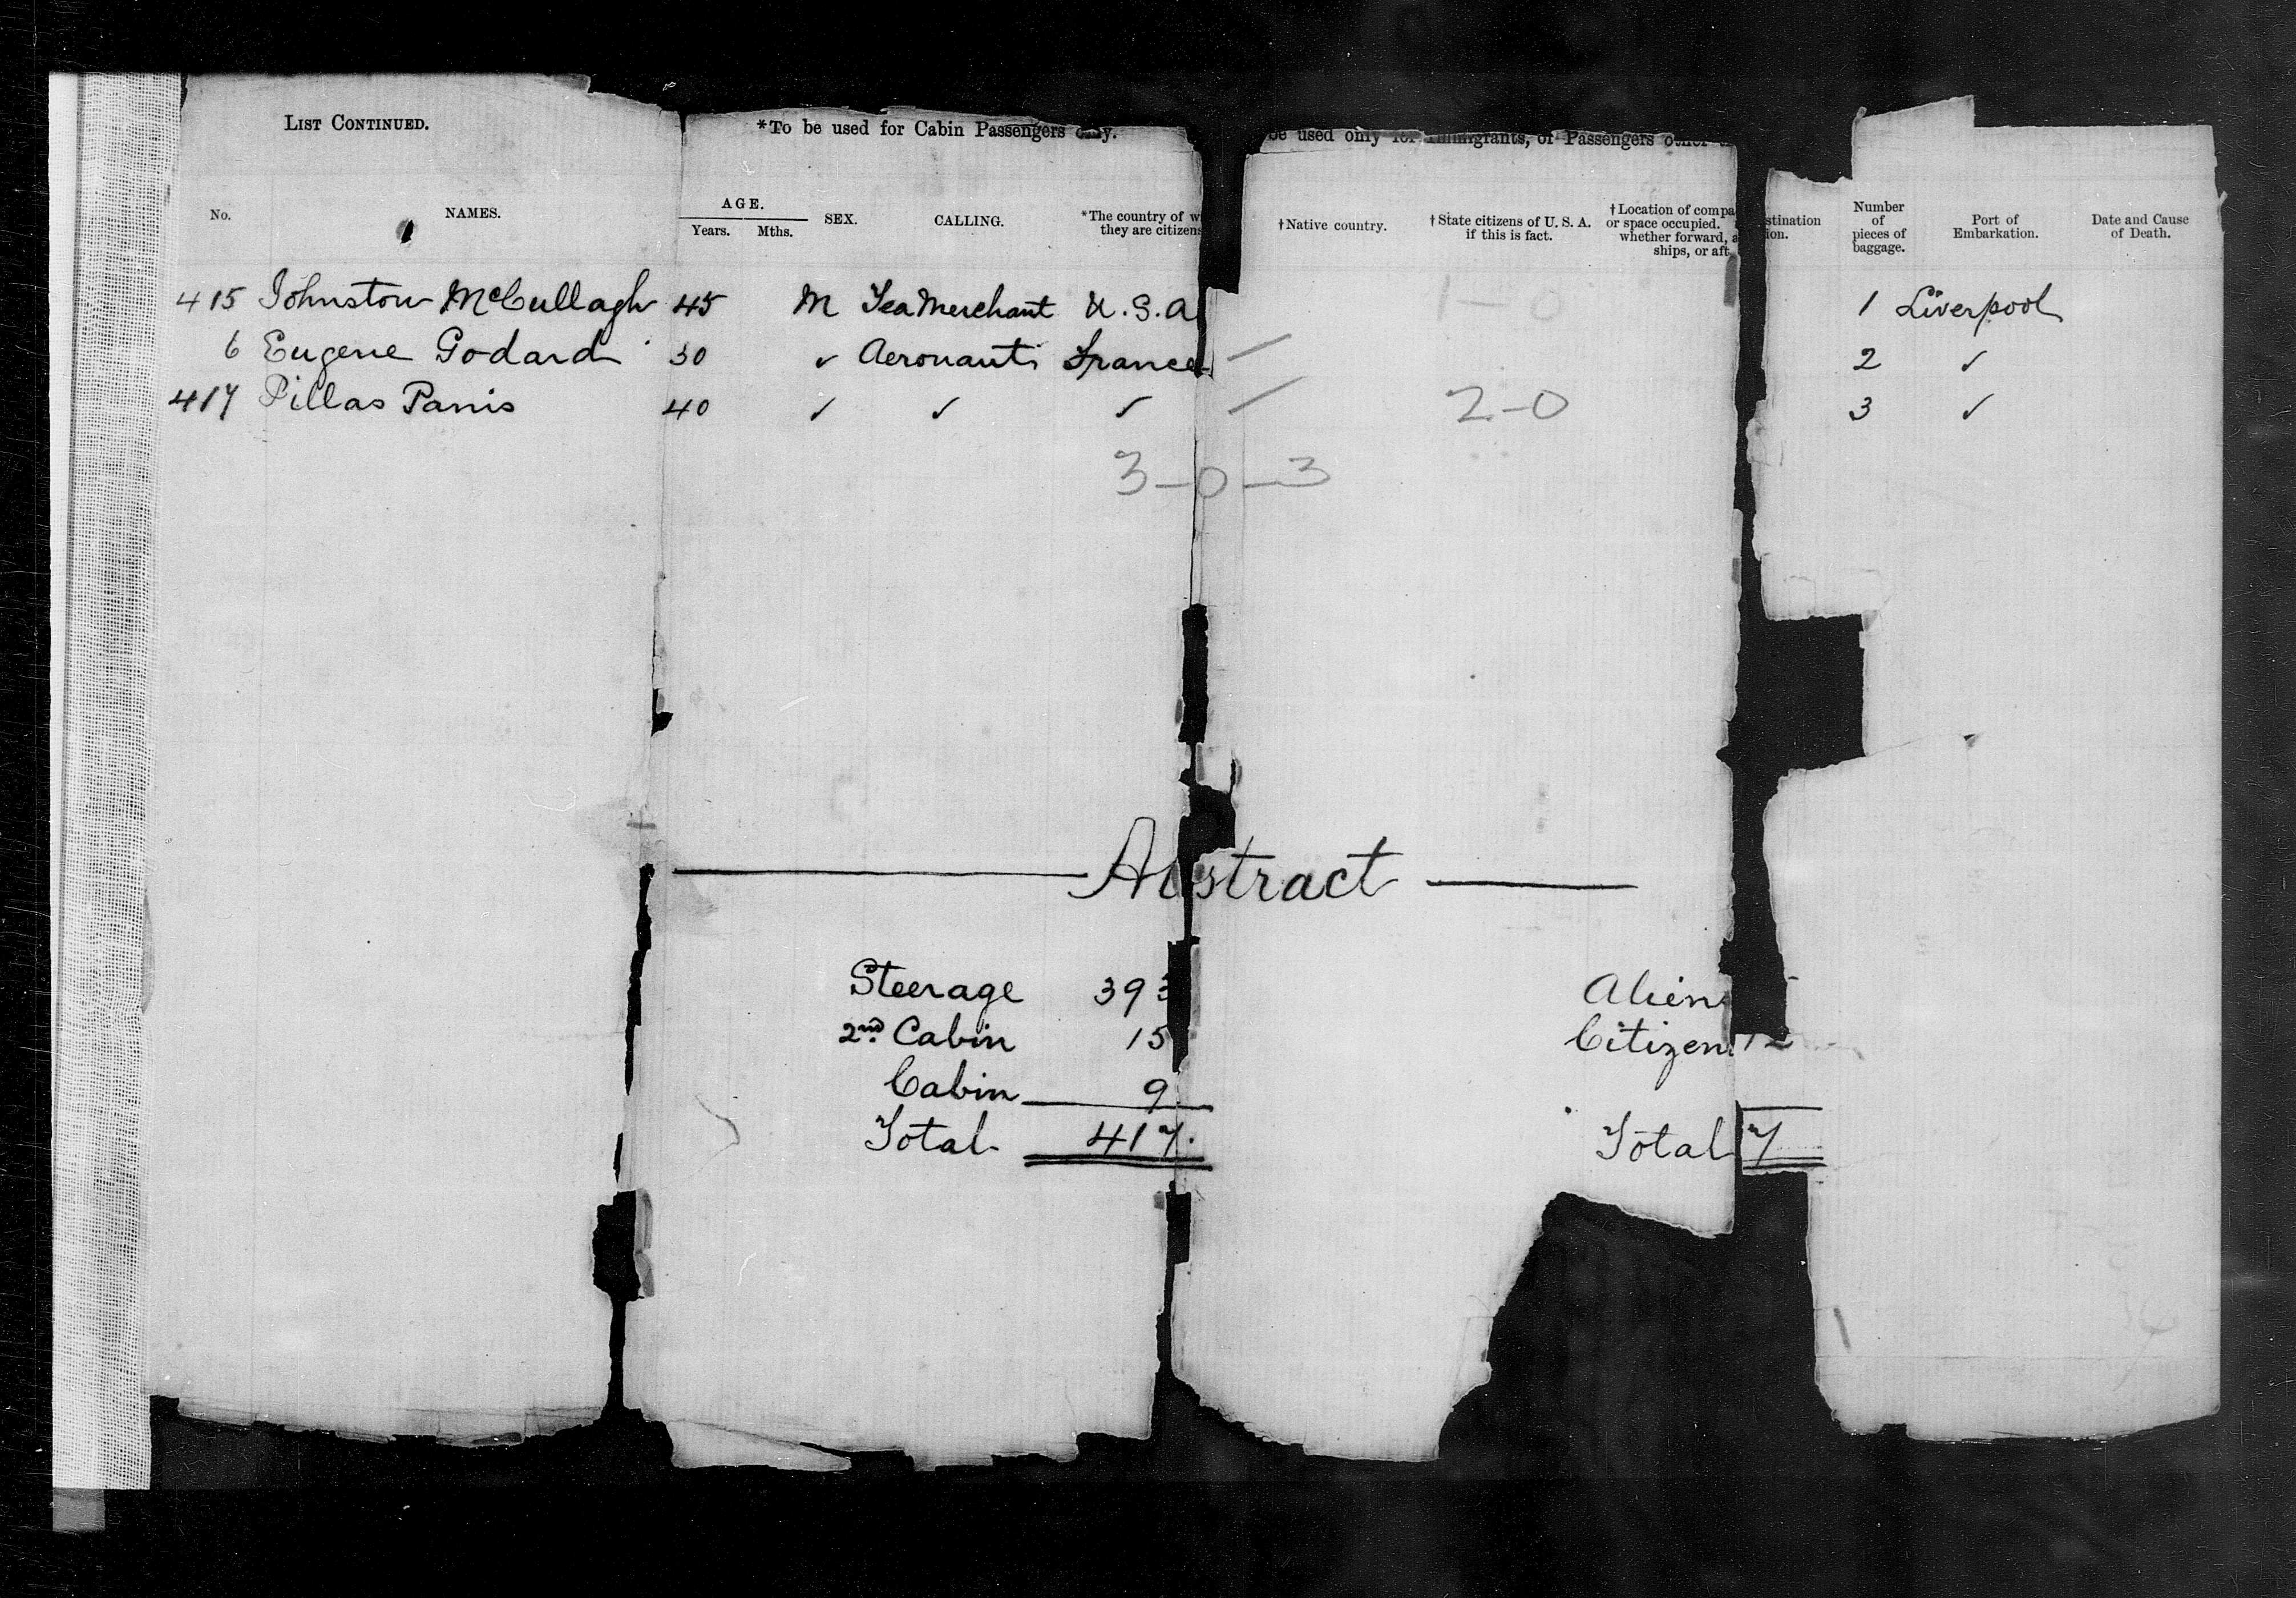 LIST CONTINUED.
*To be used for Cabin Passengers only.
be used only for Immigrants, or Passengers other
No.
NAMES.
AGE.
Years. Mths.
SEX.
CALLING.
*The country of w
they are citizens
†Native country.
†State citizens of U. S. A.
if this is fact.
†Location of compa
or space occupied.
whether forward, a
ships, or aft
stination
ion.
Number
of
pieces of
baggage.
Port of
Embarkation.
Date and Cause
of Death.
415 Johnston McCullagh 45 M Tea Merchant U.S.A 1-0 1 Liverpool
6 Eugene Godard 30 ✓ Aeronaut France / 2 ✓
417 Pillas Panis 40 ✓ ✓ ✓ / 2-0 3 ✓
3-0-3
Abstract
Steerage 393 Alien
2nd Cabin 15 Citizen
Cabin 9
Total 417. Total 7